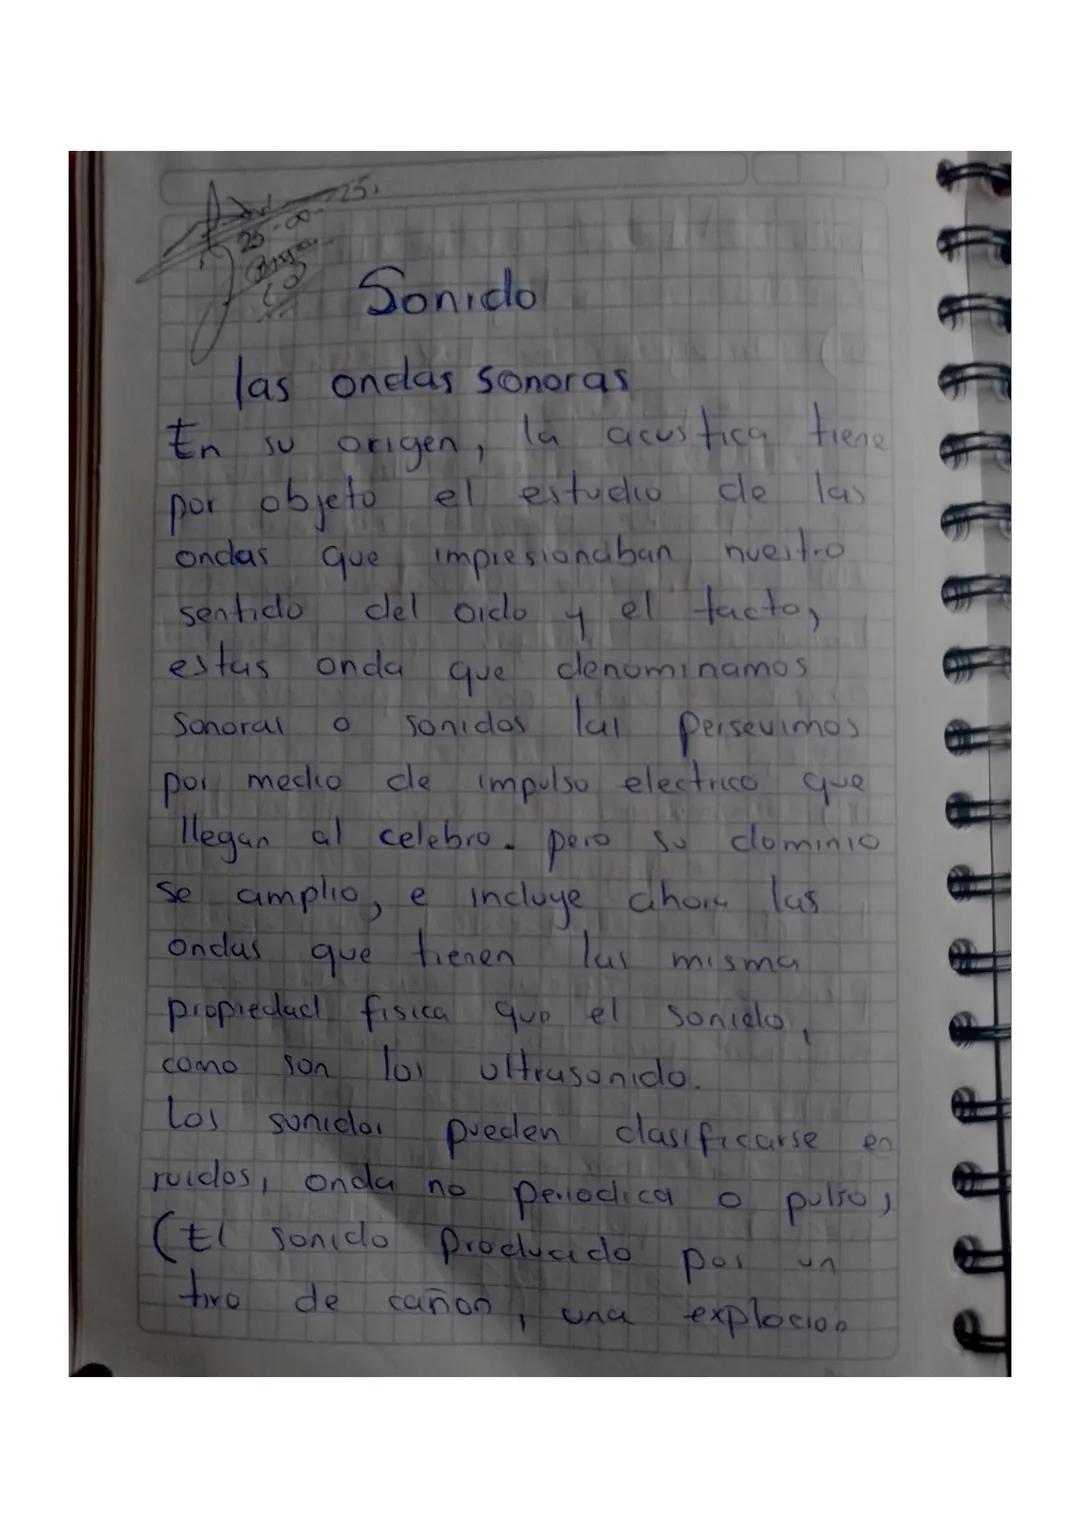 25.
Sonido
las ondas sonoras
En su origen, la acustica tiene
por objeto el estudio de las
ondas que impresionaban nuestro
sentido del oido y el tacto,
estas onda que denominamos
sonoras o sonidos las persevimos
por medio de impulso electrico que
llegan al celebro. pero su dominio
se amplio, e incluye ahora las
ondas que tienen las misma
propiedad fisica que el sonido,
como son los ultrasonido.
Los sonidos pueden clasificarse en
ruidos, onda no periodica o pulso,
(El sonido producido por un
tiro de cañon, una explocion